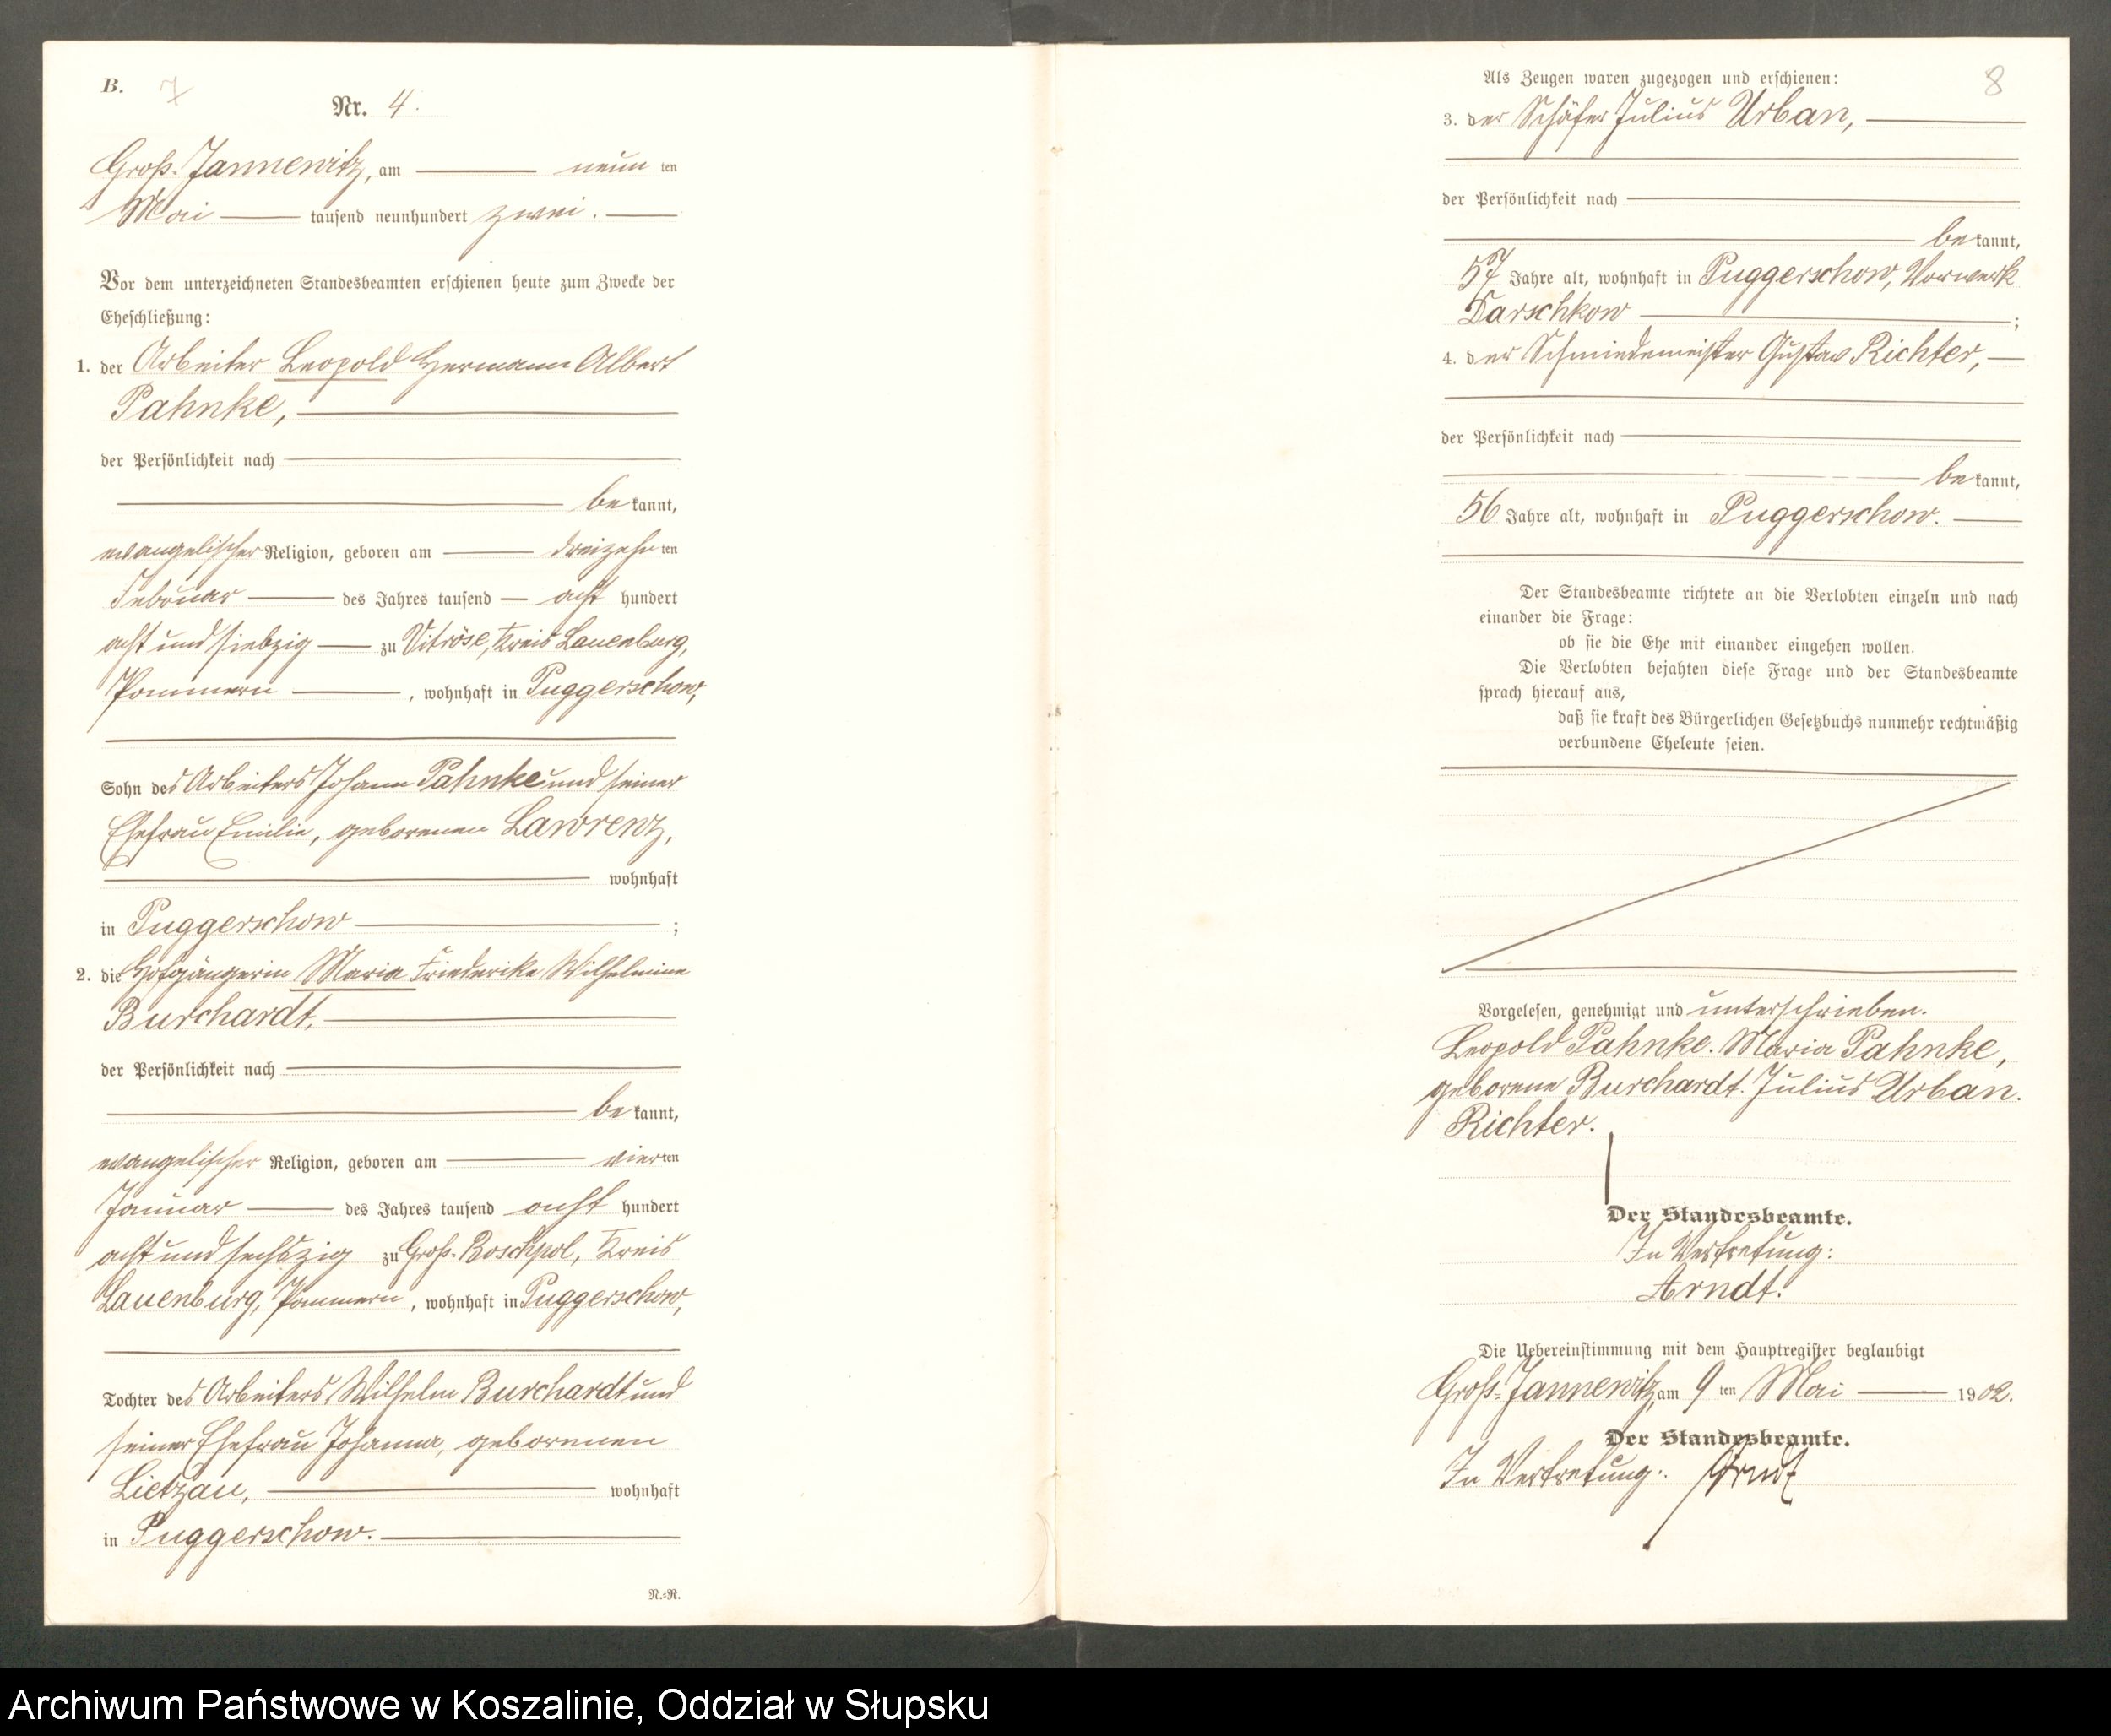 B.
7
Nr. 4.
Groß-Jannewitz, am neun ten
Mai tausend neunhundert zwei.
Vor dem unterzeichneten Standesbeamten erschienen heute zum Zwecke der
Eheschließung:
1. der Arbeiter Leopold Hermann Albert
Pahnke,
der Persönlichkeit nach
be kannt,
evangelischer Religion, geboren am dreizehn ten
Februar des Jahres tausend acht hundert
acht und siebzig zu Vitröse, Kreis Lauenburg,
Pommern, wohnhaft in Puggerschow,
Sohn des Arbeiters Johann Pahnke und seiner
Ehefrau Emilie, geborenen Lawrenz,
wohnhaft
in Puggerschow ;
2. die Hofgängerin Maria Friederike Wilhelmine
Burchardt,
der Persönlichkeit nach
be kannt,
evangelischer Religion, geboren am vier ten
Januar des Jahres tausend acht hundert
acht und sechszig zu Groß-Boschpol, Kreis
Lauenburg, Pommern, wohnhaft in Puggerschow,
Tochter des Arbeiters Wilhelm Burchardt und
seiner Ehefrau Johanna, geborenen
Lietzau, wohnhaft
in Puggerschow.
N.=N.
8
Als Zeugen waren zugezogen und erschienen:
3. der Schäfer Julius Urban,
der Persönlichkeit nach
be kannt,
57 Jahre alt, wohnhaft in Puggerschow, Vorwerk
Darschkow ;
4. der Schmiedemeister Gustav Richter,
der Persönlichkeit nach
be kannt,
56 Jahre alt, wohnhaft in Puggerschow.
Der Standesbeamte richtete an die Verlobten einzeln und nach
einander die Frage:
ob sie die Ehe mit einander eingehen wollen.
Die Verlobten bejahten diese Frage und der Standesbeamte
sprach hierauf aus,
daß sie kraft des Bürgerlichen Gesetzbuchs nunmehr rechtmäßig
verbundene Eheleute seien.
Vorgelesen, genehmigt und unterschrieben.
Leopold Pahnke. Maria Pahnke,
geborene Burchardt. Julius Urban.
Richter.
Der Standesbeamte.
In Vertretung:
Arndt.
Die Uebereinstimmung mit dem Hauptregister beglaubigt
Groß-Jannewitz, am 9 ten Mai 1902.
Der Standesbeamte.
In Vertretung: Arndt
Archiwum Państwowe w Koszalinie, Oddział w Słupsku